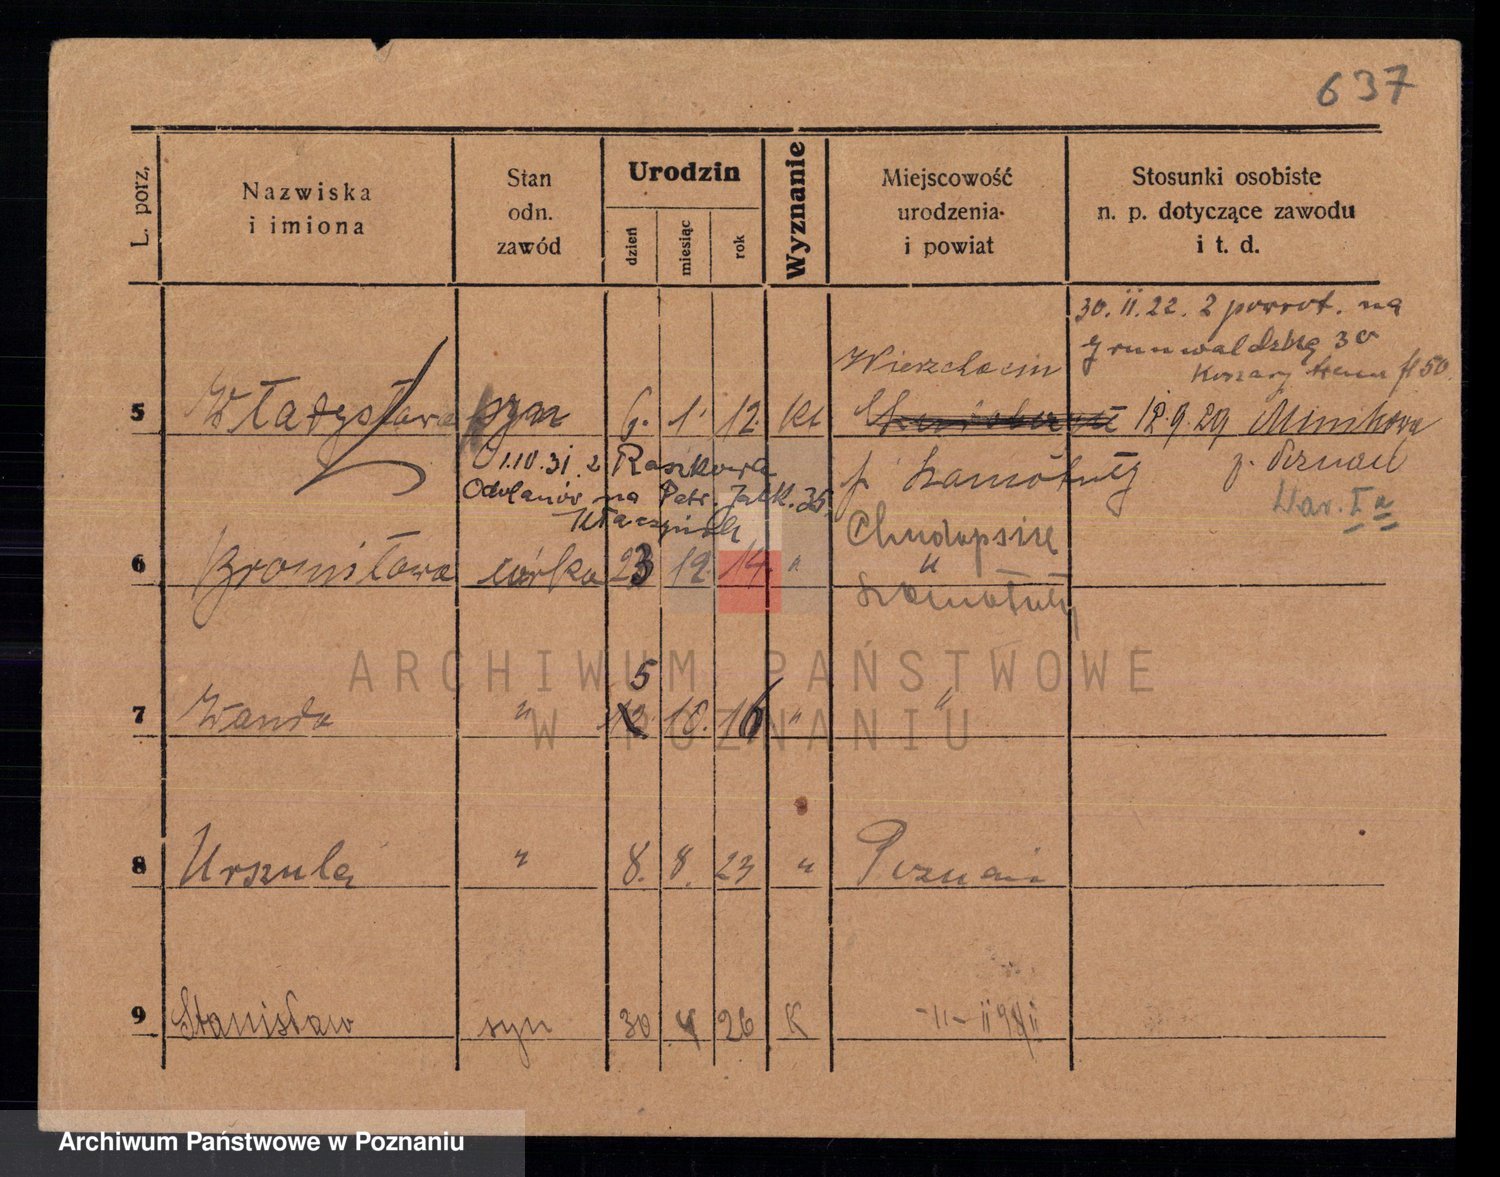 637
L. porz.
Nazwiska
i imiona
Stan
odn.
zawód
Urodzin
dzień
miesiąc
rok
Wyznanie
Miejscowość
urodzenia
i powiat
Stosunki osobiste
n. p. dotyczące zawodu
i t. d.
30. 11. 22. z powrot. na
Grunwaldzką 30
Koszary
50
Wierzchocin
5 Władysława syn 6. 1. 12. kt
12.9.29 Minikowo
p. Poznań
p. Szamotuły
1.10.31 z Raszkowa
Odolanów na Patr. Jack. 35
War. I
Chudopsice
6 Bronisława córka 23 12 14. "
"
Szamotuły
5
7 Wanda " 12. 10. 16 " "
8 Urszula " 8. 8. 23 " Poznań
9 Stanisław syn 30 4 26 K -"-
ARCHIWUM PAŃSTWOWE
W POZNANIU
Archiwum Państwowe w Poznaniu